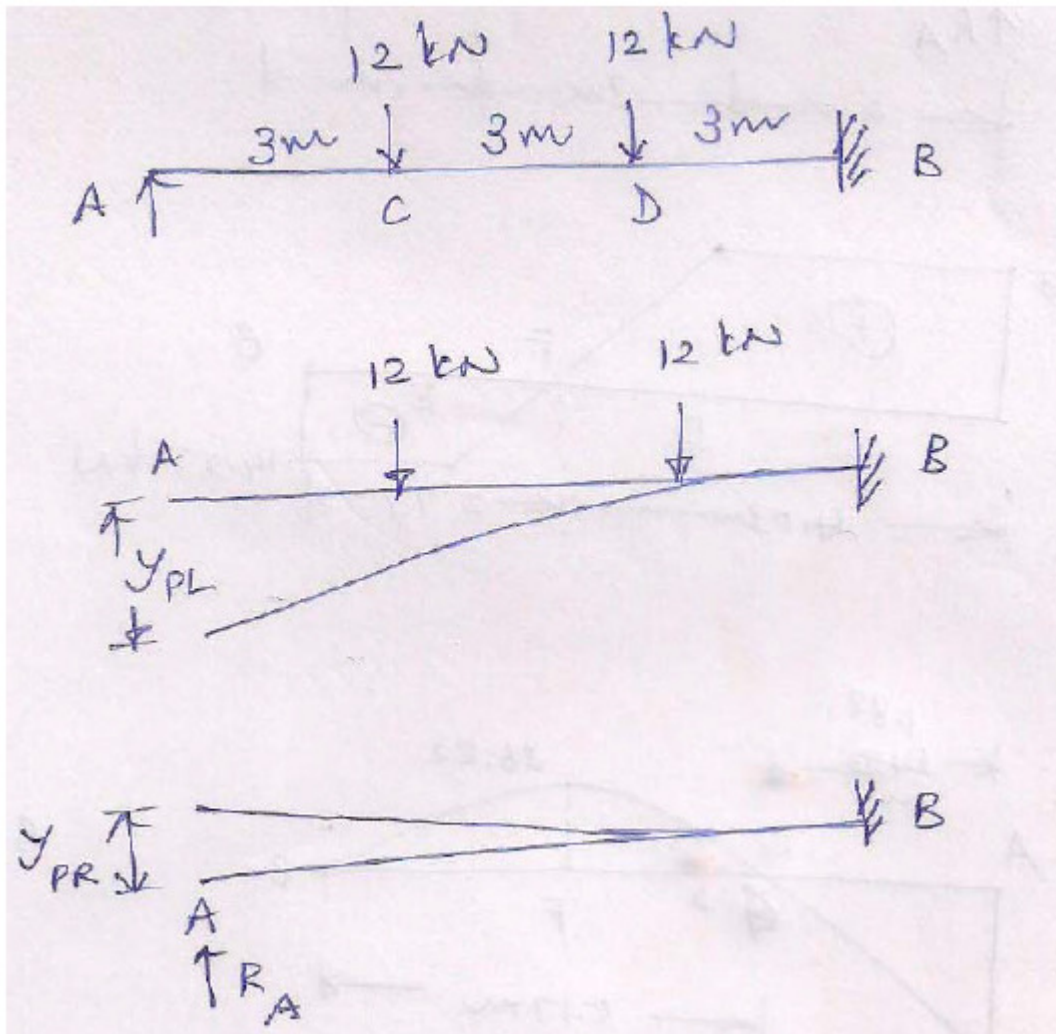 12 kN 12 kN
3m 3m 3m
A C D B
12 kN 12 kN
A B
y PL
y PR B
A
R A